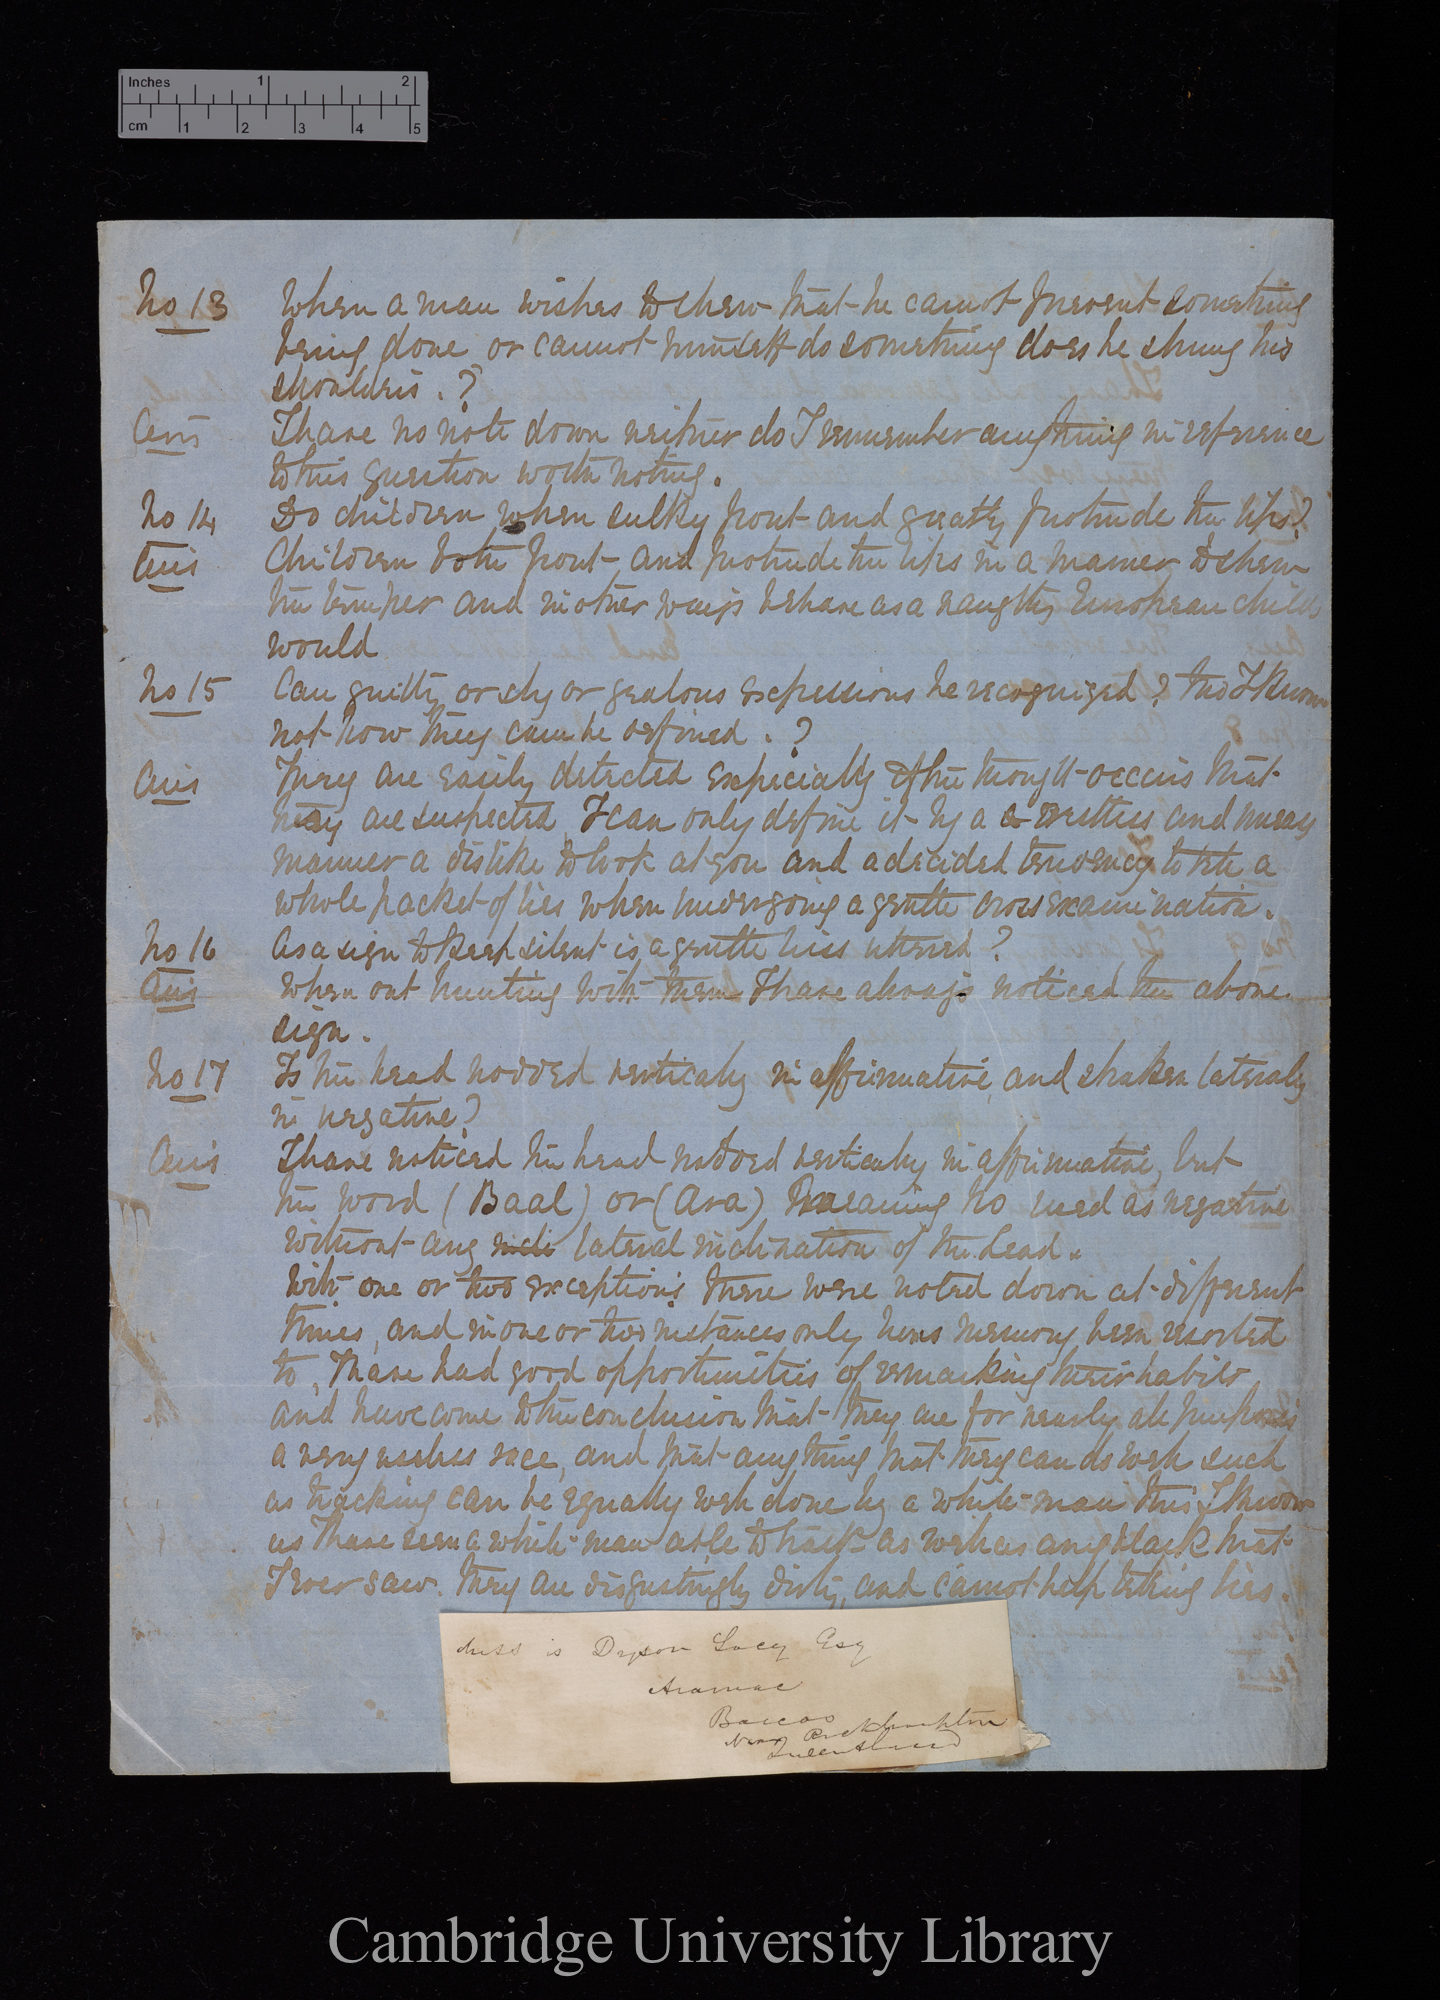 Inches 1 2
cm 1 2 3 4 5
No 13 When a man wishes to shew that he cannot prevent something
being done or cannot himself do something does he shrug his
shoulders. ?
Ans I have no note down neither do I remember anything in reference
to this question worth noting.
No 14 Do children when sulky pout and greatly protrude the lips?
Ans Children both pout and protrude the lips in a manner to shew
the temper and in other ways behave as a naughty European child
would
No 15 Can guilty or sly or jealous expressions be recognized? tho I know
not how they can be defined. ?
Ans They are easily detected especially if the thought occurs that
they are suspected, I can only define it by a a restless and uneasy
manner a dislike to look at you and a decided tendency to tell a
whole packet of lies when undergoing a gentle cross examination.
No 16 As a sign to keep silent is a gentle hiss uttered?
Ans When out hunting with them I have always noticed the above
sign.
No 17 Is the head nodded vertically in affirmative, and shaken laterally
in negative?
Ans I have noticed the head nodded vertically in affirmative, but
the word (Baal) or (Ara) meaning No used as negative
without any incli lateral inclination of the head.
With one or two exceptions these were noted down at different
times, and in one or two instances only has memory been resorted
to, I have had good opportunities of remarking their habits
and have come to the conclusion that they are for nearly all purposes
a very useless race, and that anything that they can do well such
as tracking can be equally well done by a white man this I know
as I have seen a white man able to track as well as any black that
I ever saw. They are disgustingly dirty, and cannot help telling lies.
dress is Dyson Lacy Esq
Aramac
Barcoo
Near Rockhampton
Queensland
Cambridge University Library